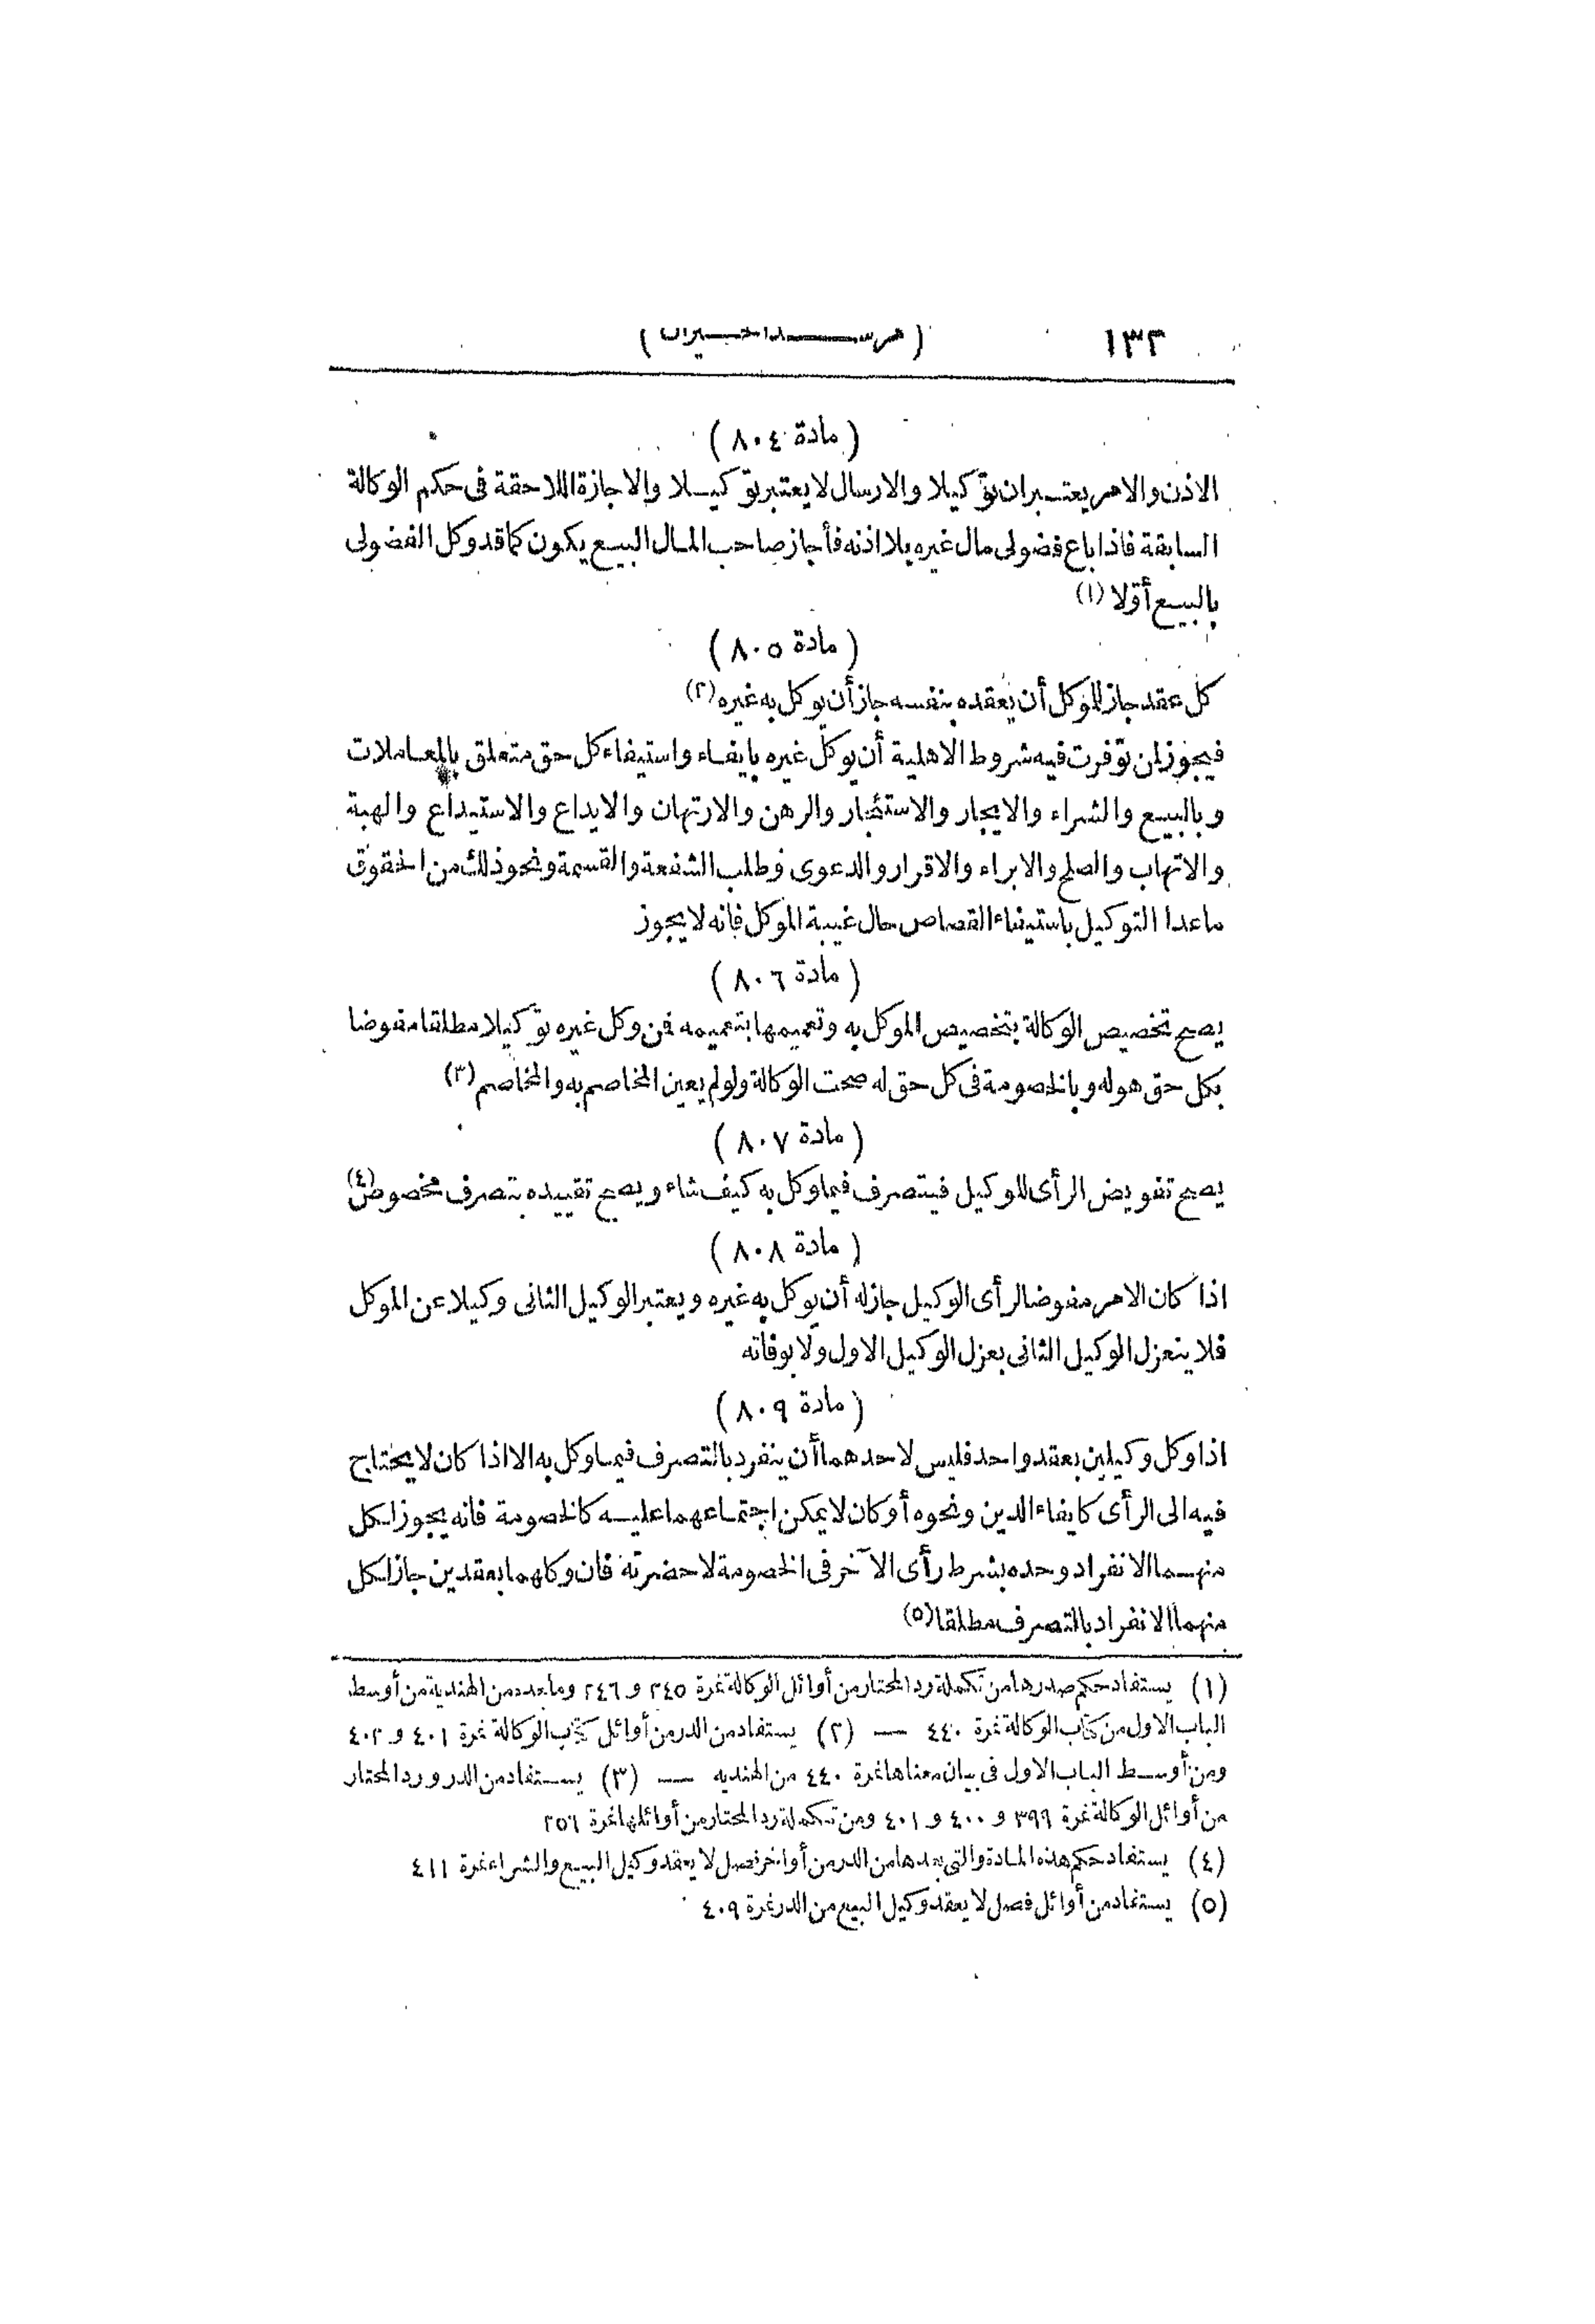 ١٣٢ (مرشد الحيران)
(مادة ٨٠٤)
الاذن والامر يعتبران توكيلا والارسال لا يعتبر توكيلا والاجازة اللاحقة فى حكم الوكالة
السابقة فاذا باع فضولى مال غيره بلا اذنه فأجاز صاحب المال البيع يكون كما قد وكل الفضولى
بالبيع أوّلا (١)
(مادة ٨٠٥)
كل عقد جاز للموكل أن يعقده بنفسه جاز أن يوكل به غيره (٢)
فيجوز لمن توّفرت فيه شروط الاهلية أن يوكل غيره بايفاء واستيفاء كل حق متعلق بالمعاملات
وبالبيع والشراء والايجار والاستئجار والرهن والارتهان والايداع والاستيداع والهبة
والاتهاب والصلح والابراء والاقرار والدعوى وطلب الشفعة والقسمة ونحو ذلك من الحقوق
ماعدا التوكيل باستيفاء القصاص حال غيبة الموكل فانه لا يجوز
(مادة ٨٠٦)
يصح تخصيص الوكالة بتخصيص الموكل به وتعميمها بتعميمه فمن وكل غيره توكيلا مطلقا مفوضا
بكل حق هو له وبالخصومة فى كل حق له صحت الوكالة ولو لم يعين المخاصم به والمخاصم (٣)
(مادة ٨٠٧)
يصح تفويض الرأى للوكيل فيتصرف فيما وكل به كيف شاء ويصح تقييده بتصرف مخصوص (٤)
(مادة ٨٠٨)
اذا كان الامر مفوضا لرأى الوكيل جاز له أن يوكل به غيره ويعتبر الوكيل الثانى وكيلا عن الموكل
فلا ينعزل الوكيل الثانى بعزل الوكيل الاول ولا بوفاته
(مادة ٨٠٩)
اذا وكل وكيلين بعقد واحد فليس لاحدهما أن ينفرد بالتصرف فيما وكل به الا اذا كان لا يحتاج
فيه الى الرأى كايفاء الدين ونحوه أو كان لا يمكن اجتماعهما عليه كالخصومة فانه يجوز لكل
منهما الانفراد وحده بشرط رأى الآخر فى الخصومة لا حضرته فان وكلهما بعقدين جاز لكل
منهما الانفراد بالتصرف مطلقا (٥)
(١) يستفاد حكم صدرها من تكملة رد المحتار من أوائل الوكالة نمرة ٢٤٥ و ٢٤٦ وما بعده من الهندية من أوسط
الباب الاول من كتاب الوكالة نمرة ٤٤٠ — (٢) يستفاد من الدر من أوائل كتاب الوكالة نمرة ٤٠١ و ٤٠٢
ومن أوسط الباب الاول فى بيان معناها نمرة ٤٤٠ من الهنديه — (٣) يستفاد من الدر ورد المحتار
من أوائل الوكالة نمرة ٣٩٩ و ٤٠٠ و ٤٠١ ومن تكملة رد المحتار من أوائلها نمرة ٢٥٦
(٤) يستفاد حكم هذه المادة والتى بعدها من الدر من أواخر فصل لا يعقد وكيل البيع والشراء نمرة ٤١١
(٥) يستفاد من أوائل فصل لا يعقد وكيل البيع من الدر نمرة ٤٠٩